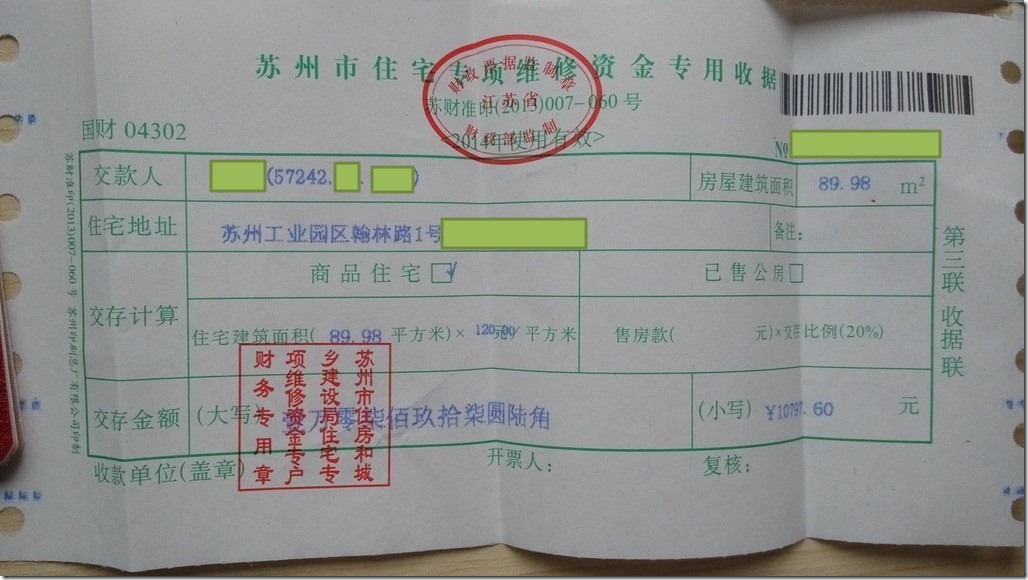 苏州市住宅专项维修资金专用收据
苏财准印(2013)007-060 号
国财 04302
<2014年使用有效>
财政票据监制章
江苏省
财政部监制
№
交款人
(57242. . )
房屋建筑面积
89.98 m²
住宅地址
苏州工业园区翰林路1号
备注:
交存计算
商品住宅☑
已售公房□
住宅建筑面积( 89.98 平方米)× 120.00元/ 平方米
售房款( 元)×交存比例(20%)
交存金额
(大写) 壹万零柒佰玖拾柒圆陆角
(小写) ¥10797.60 元
收款单位(盖章)
开票人:
复核:
苏州市住房和城
乡建设局住宅专
项维修资金专户
财务专用章
第三联 收据联
苏财准印(2013)007-060 号 苏州印刷总厂有限公司印制